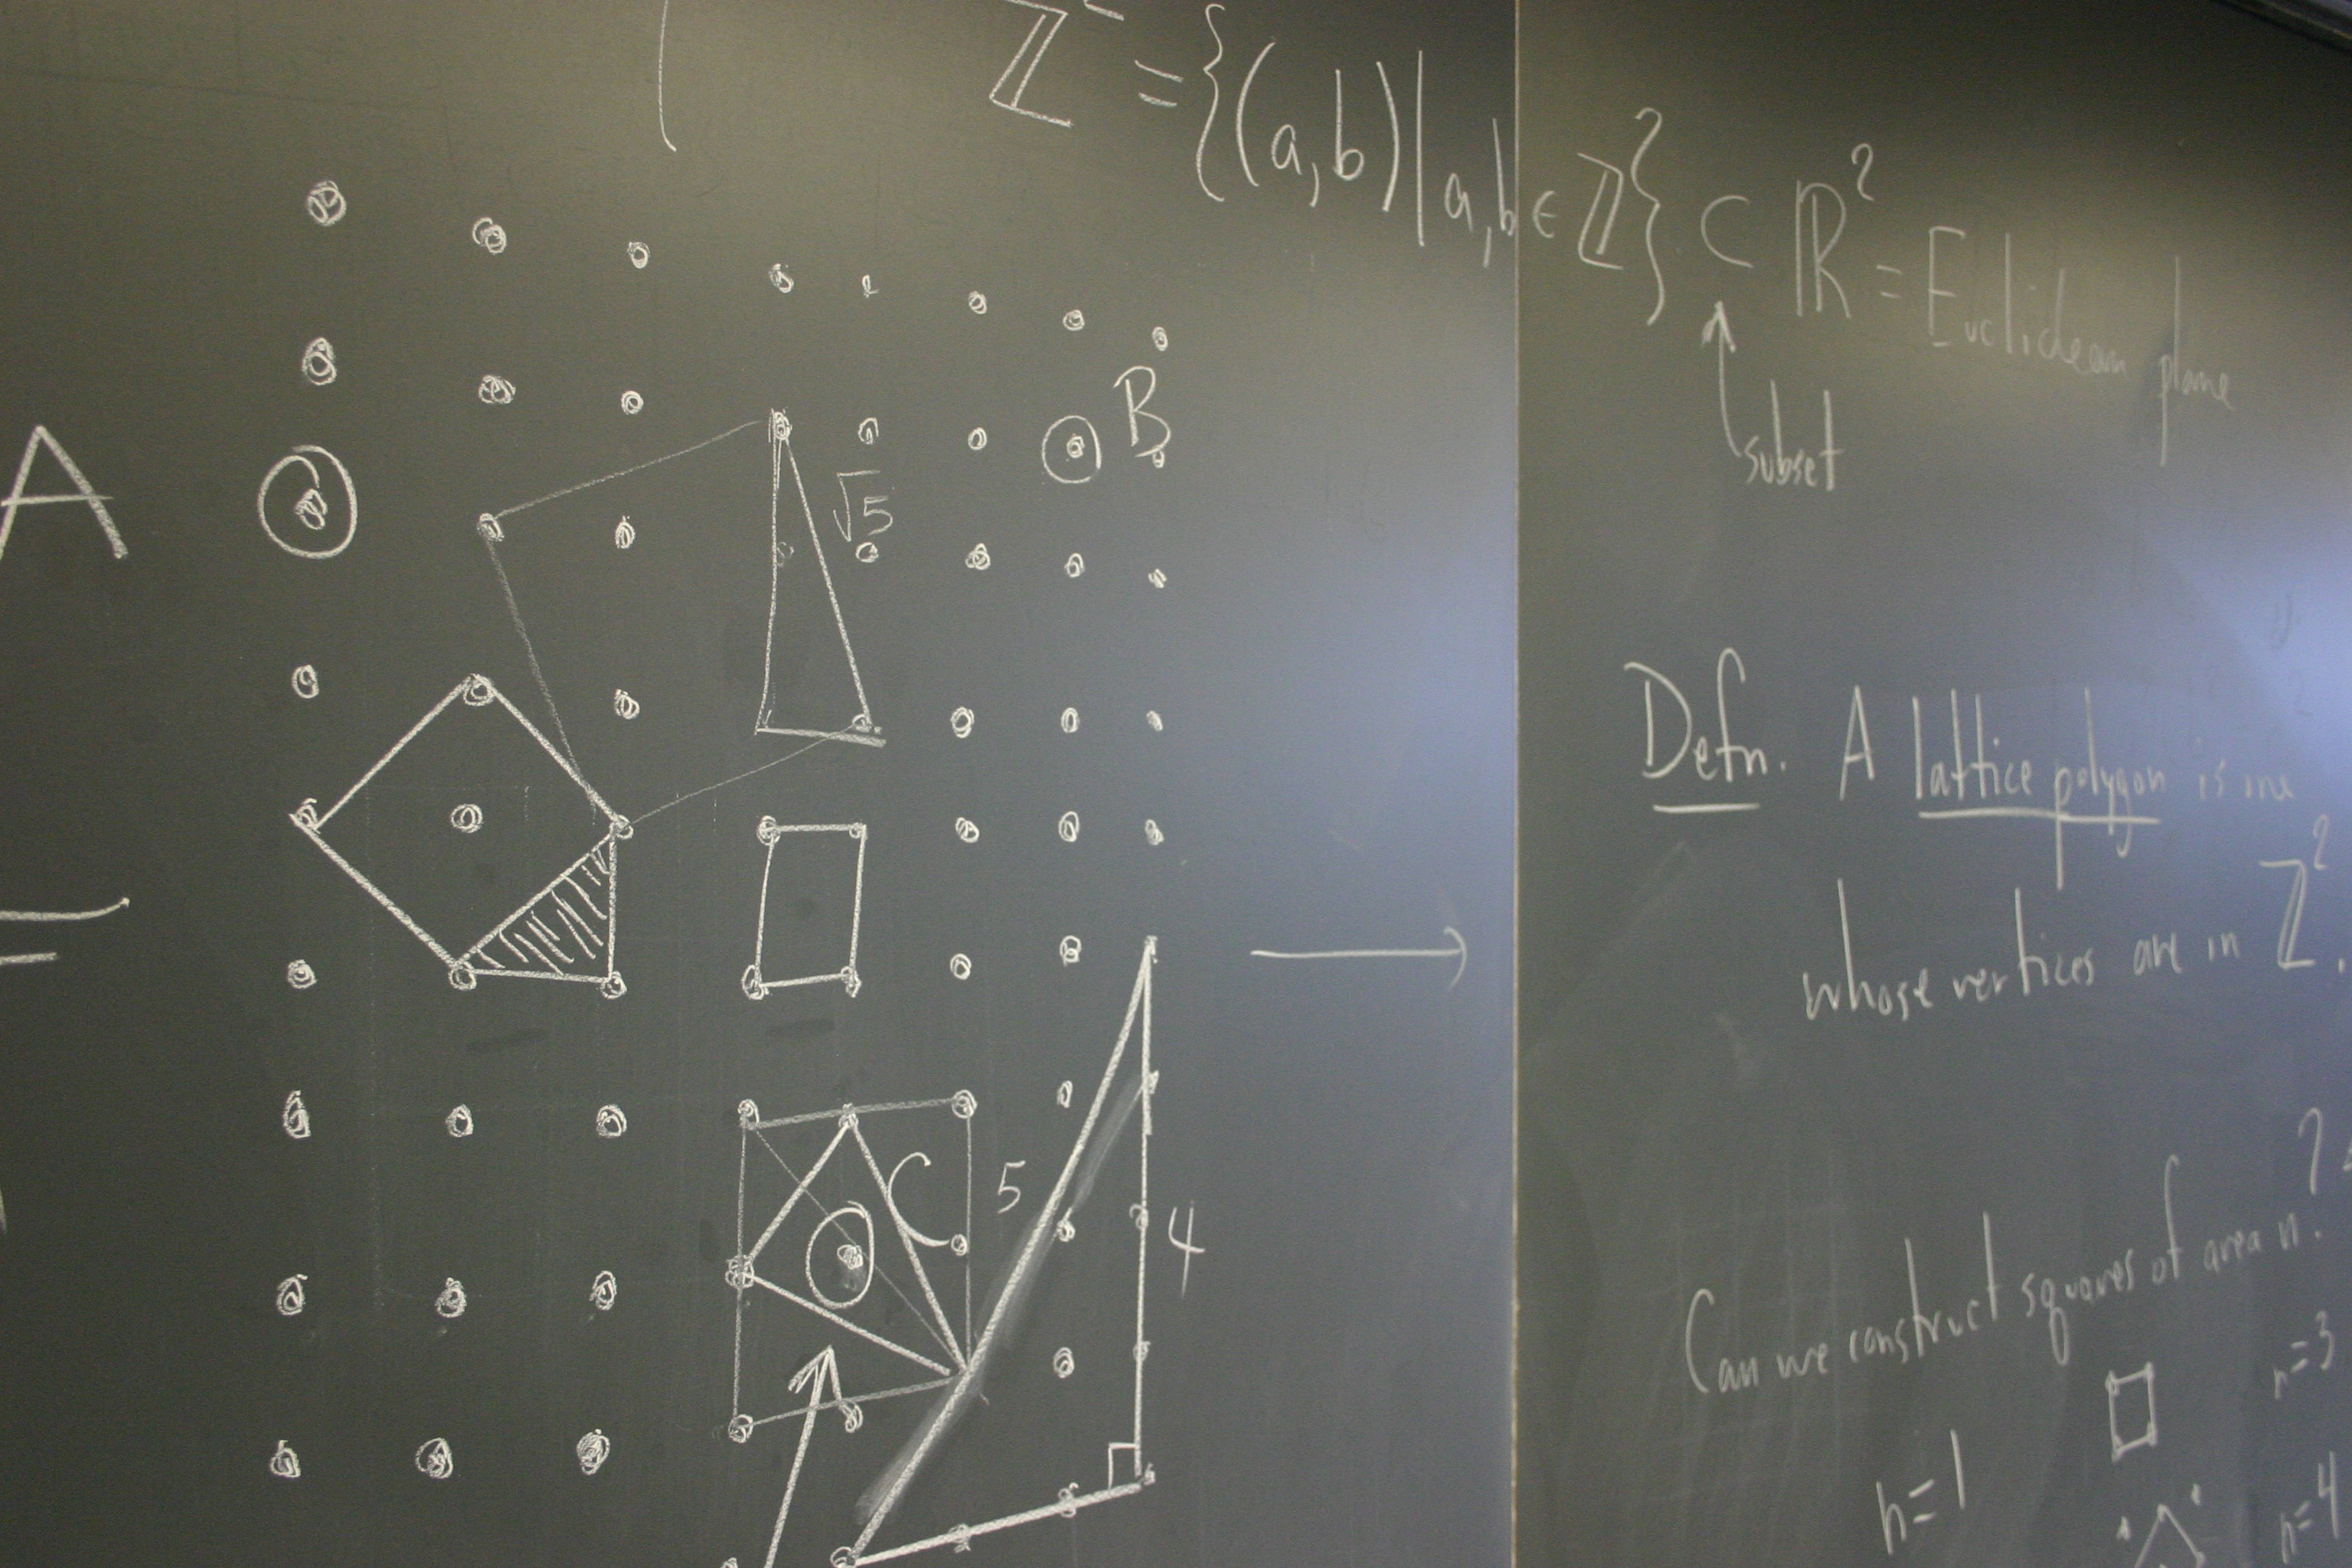 ℤ = {(a,b) | a,b ∈ ℤ} ⊂ ℝ² = Euclidean plane
subset
A
B
√5
Defn. A lattice polygon is one
whose vertices are in ℤ².
C
5
4
Can we construct squares of area n?
n=1
n=3
n=4